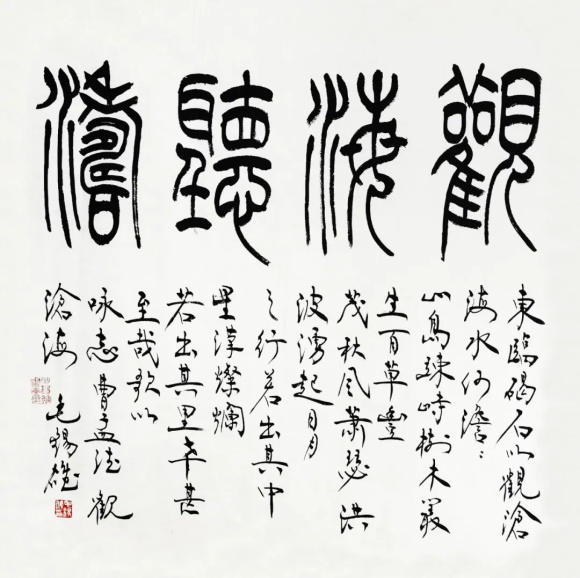 觀海聽濤
東臨碣石以觀滄
海水何澹〻
山島竦峙樹木叢
生百草豐
茂秋风蕭瑟洪
波湧起日月
之行若出其中
星漢燦爛
若出其里幸甚
至哉歌以
詠志曹孟德觀
滄海
毛錫雄